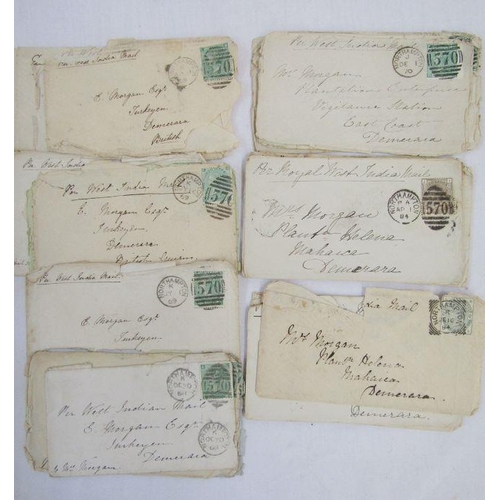 Per West India Mail
E. Morgan Esqr
Turkeyen
Demerara
British
570
Per West India
Per West India Mail
E. Morgan Esqr
Turkeyen
Demerara
British Guiana
Per West India Mail
NORTHAMPTON
570
E. Morgan Esqr
Turkeyen
Per West Indian Mail
E Morgan Esqr
Turkeyen
Demerara
Mrs Morgan
NORTHAMPTON
570
Per West India
NORTHAMPTON
570
Mrs Morgan
Plantation Enterprise
Vigilance Station
East Coast
Demerara
Per Royal West India Mail
NORTHAMPTON
570
Mrs Morgan
Plantn Helena
Mahaica
Demerara
India Mail
Mrs Morgan
Plantn Helena
Mahaica
Demerara
Demerara